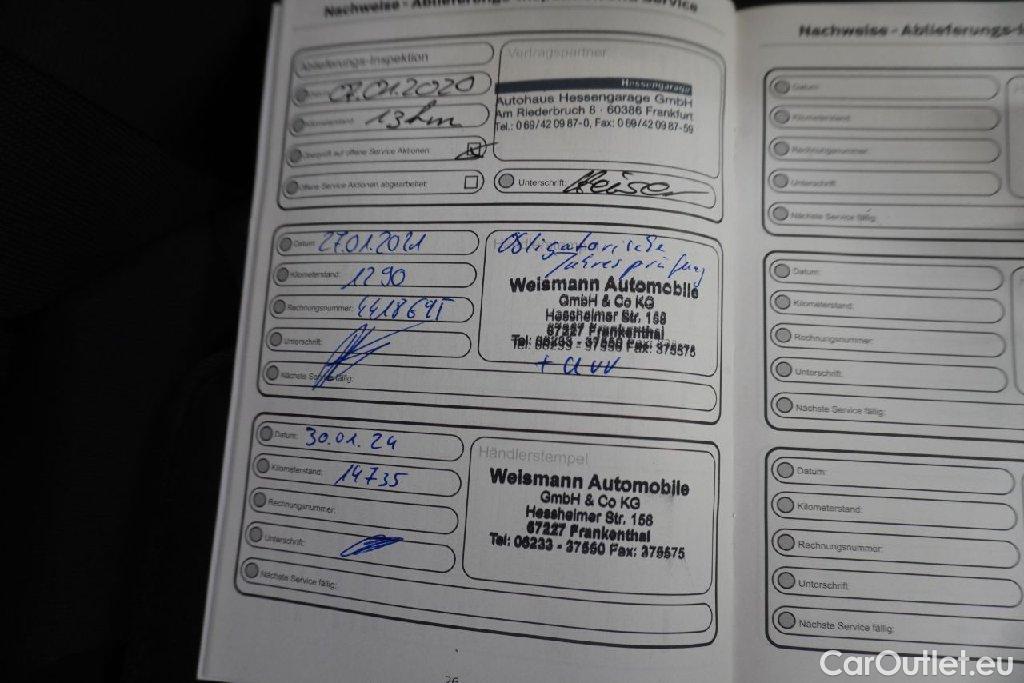 Nachweise - Ablieferungs-Inspektion und Service
Ablieferungs-Inspektion
07.01.2020
Kilometerstand: 13 km
Überprüft auf offene Service Aktionen:
Offene Service Aktionen abgearbeitet:
Vertragspartner
Hessengarage
Autohaus Hessengarage GmbH
Am Riederbruch 8 · 60386 Frankfurt
Tel.: 0 69/42 09 87-0, Fax: 0 69/42 09 87-59
Unterschrift:
Datum: 27.01.2021
Kilometerstand: 1290
Rechnungsnummer:
Unterschrift:
Nächste Service fällig:
Obligatorische
Jahresprüfung
Weismann Automobile
GmbH & Co KG
Hessheimer Str. 158
67227 Frankenthal
Tel: 06233 - 37550 Fax: 375575
Datum: 30.01.24
Kilometerstand: 14735
Rechnungsnummer:
Unterschrift:
Nächste Service fällig:
Händlerstempel
Weismann Automobile
GmbH & Co KG
Hessheimer Str. 158
67227 Frankenthal
Tel: 06233 - 37550 Fax: 375575
26
Nachweise - Ablieferungs-I
Datum:
Kilometerstand:
Rechnungsnummer:
Unterschrift:
Nächste Service fällig:
Datum:
Kilometerstand:
Rechnungsnummer:
Unterschrift:
Nächste Service fällig:
Datum:
Kilometerstand:
Rechnungsnummer:
Unterschrift:
Nächste Service fällig:
CarOutlet.eu